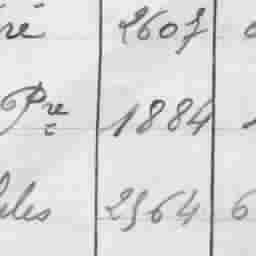 ré 2607
Pre 1884
les 2564 6